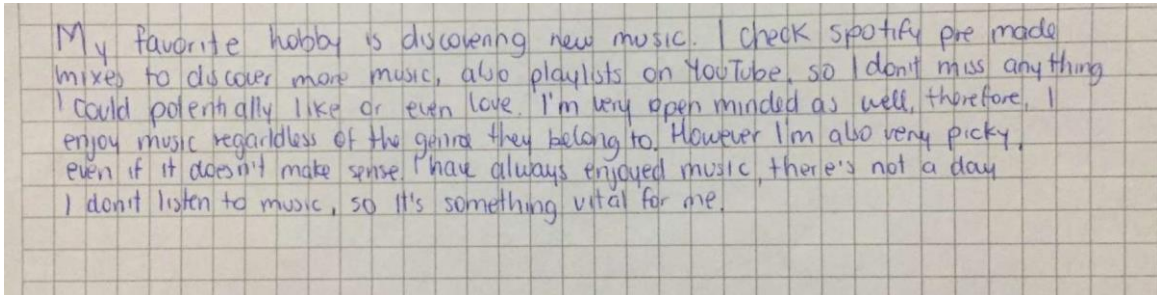 My favorite hobby is discovering new music. I check spotify pre made
mixes to discover more music, also playlists on YouTube, so I don't miss anything
I could potentially like or even love. I'm very open minded as well, therefore, I
enjoy music regardless of the genre they belong to. However I'm also very picky,
even if it doesn't make sense. I have always enjoyed music, there's not a day
I don't listen to music, so it's something vital for me.